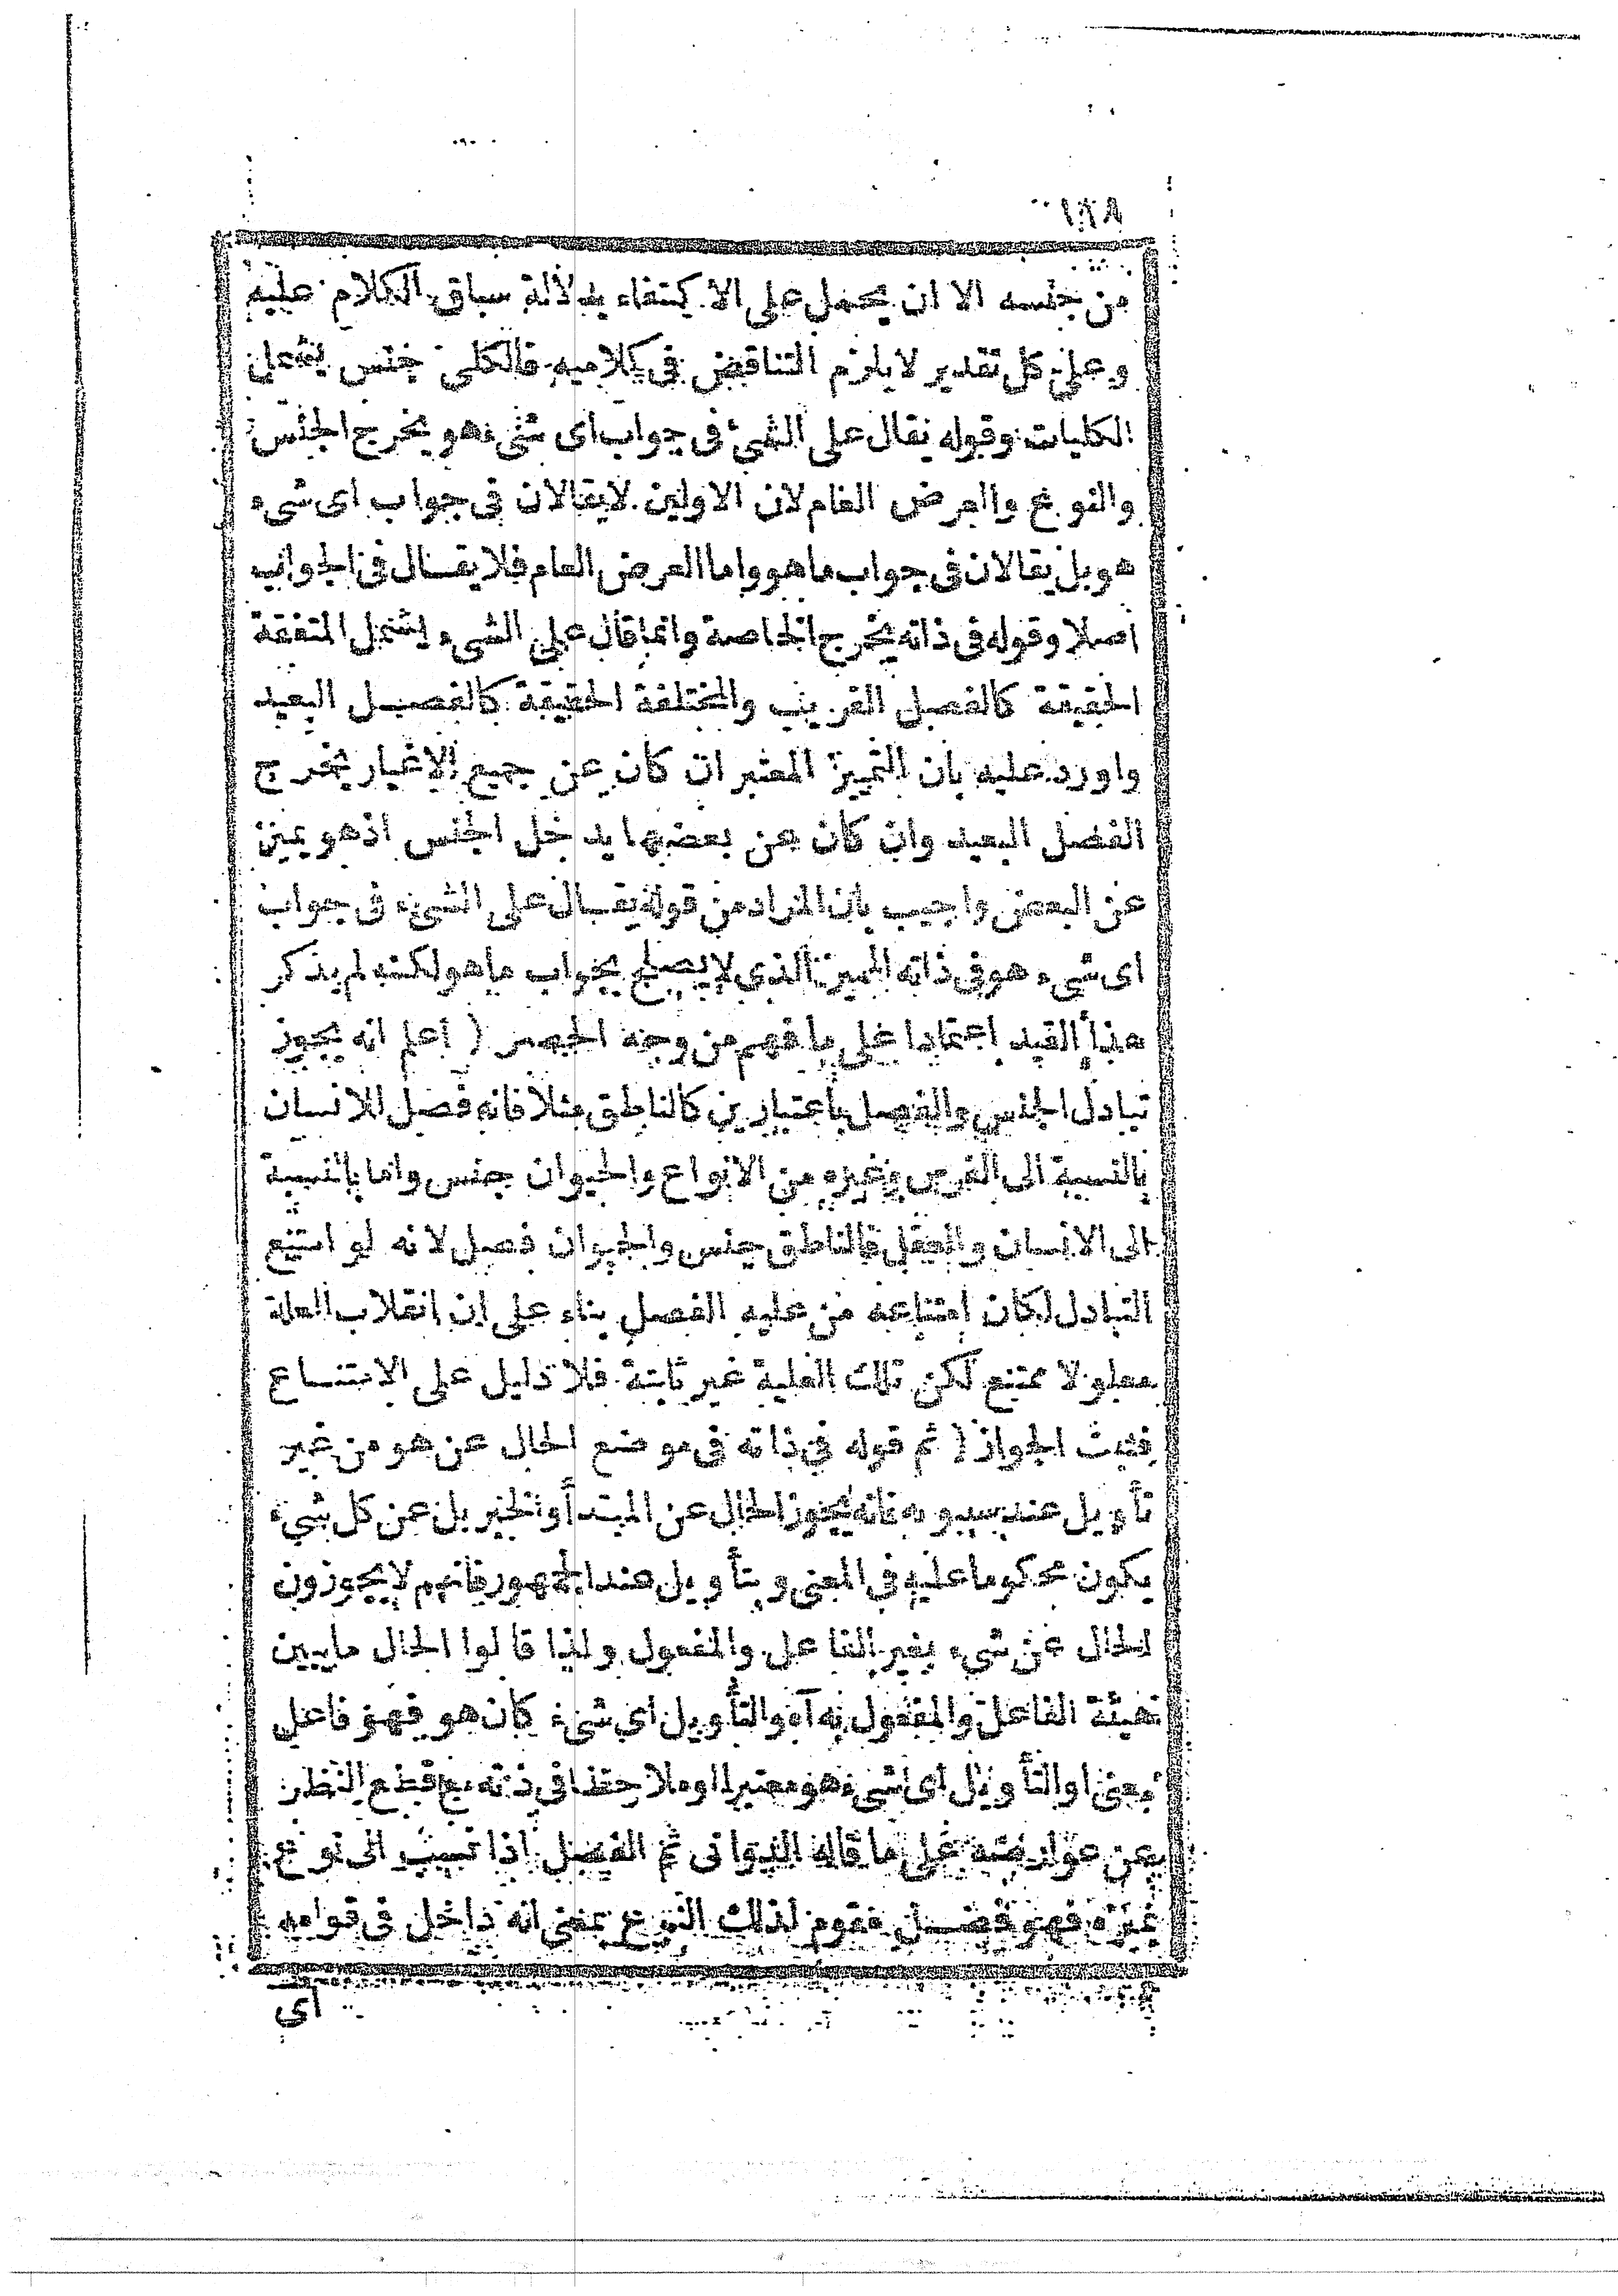 ١٢٨
من جنسه الا ان يحمل على الاكتفاء بدلالة سباق الكلام عليه
وعلى كل تقدير لا يلزم التناقض فى كلاميه فالكلى جنس يشمل
الكليات وقوله يقال على الشىء فى جواب اى شىء هو يخرج الجنس
والنوع والعرض العام لان الاولين لا يقالان فى جواب اى شىء
هو بل يقالان فى جواب ما هو واما العرض العام فلا يقال فى الجواب
اصلا وقوله فى ذاته يخرج الخاصة وانما قال على الشىء ليشمل المتفقة
الحقيقة كالفصل القريب والمختلفة الحقيقة كالفصل البعيد
واورد عليه بان التمييز المعتبر ان كان عن جميع الاغيار يخرج
الفصل البعيد وان كان عن بعضها يدخل الجنس اذ هو يميز
عن البعض واجيب بان المراد من قوله يقال على الشىء فى جواب
اى شىء هو فى ذاته المميز الذى لا يصلح بجواب ما هو لكنه لم يذكر
هذا القيد اعتمادا على ما فهم من وجه الحصر ( اعلم انه يجوز
تبادل الجنس والفصل باعتبارين كالناطق مثلا فانه فصل للانسان
بالنسبة الى الفرس وغيره من الانواع والحيوان جنس واما بالنسبة
الى الانسان والعقل فالناطق جنس والحيوان فصل لانه لو امتنع
التبادل لكان امتناعه من علية الفصل بناء على ان انقلاب العلة
معلولا ممتنع لكن تلك العلية غير ثابتة فلا دليل على الامتناع
فثبت الجواز ( ثم قوله فى ذاته فى موضع الحال عن هو من غير
تأويل عند سيبويه فانه يجوز الحال عن المبتدأ والخبر بل عن كل شىء
يكون محكوما عليه فى المعنى وبتأويل عند الجمهور فانهم لا يجوزون
الحال عن شىء بغير الفاعل والمفعول ولذا قالوا الحال ما يبين
هيئة الفاعل والمفعول به آه والتأويل اى شىء كان هو فهو فاعل
معنى او التأويل اى شىء هو معتبرا او ملاحظا فى ذته مع قطع النظر
عن عوارضه على ما قاله الدوانى ثم الفصل اذا نسب الى نوع
ميزه فهو فصل مقوم لذلك النوع بمعنى انه داخل فى قوامه
اى